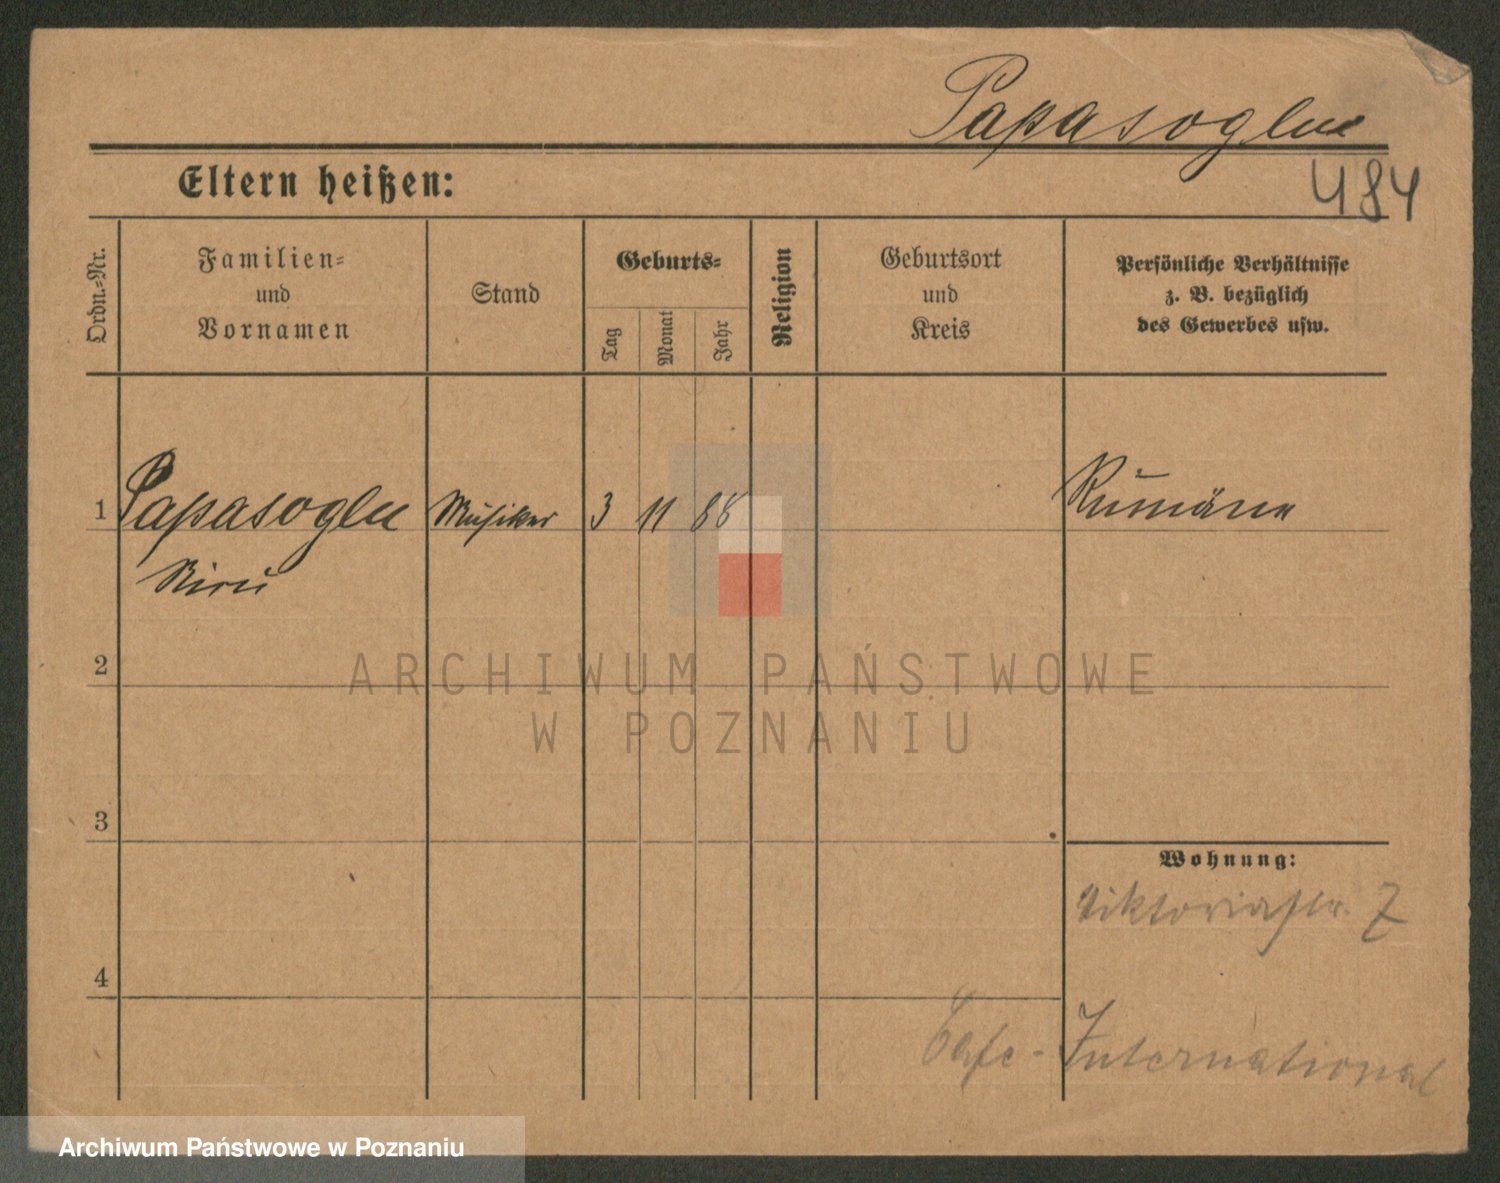 Papasoglu
484
Eltern heißen:
Ordn.-Nr.
Familien-
und
Vornamen
Stand
Geburts-
Tag
Monat
Jahr
Religion
Geburtsort
und
Kreis
Persönliche Verhältnisse
z. B. bezüglich
des Gewerbes usw.
1 Papasoglu Musiker 3 11 88 Rumäne
2
3
4
Wohnung:
Viktoriastr. 7
Cafe-International
ARCHIWUM PAŃSTWOWE
W POZNANIU
Archiwum Państwowe w Poznaniu